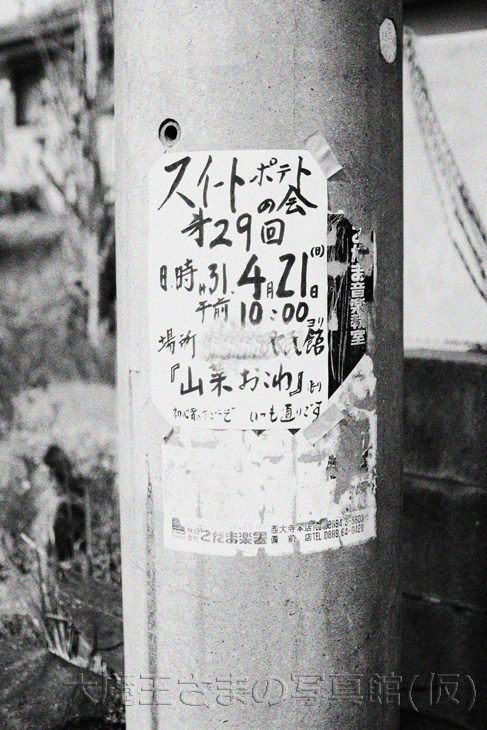 スイートポテト
の会
第29回
日時 H31.4月21日(日)
午前10:00ヨリ
場所 館
『山菜おこわ』
初心者の方どうぞ いつも通りです
こだま音楽教室
株式会社 こだま楽器
西大寺本店
備前店TEL 0869 64-0429
大魔王さまの写真館(仮)